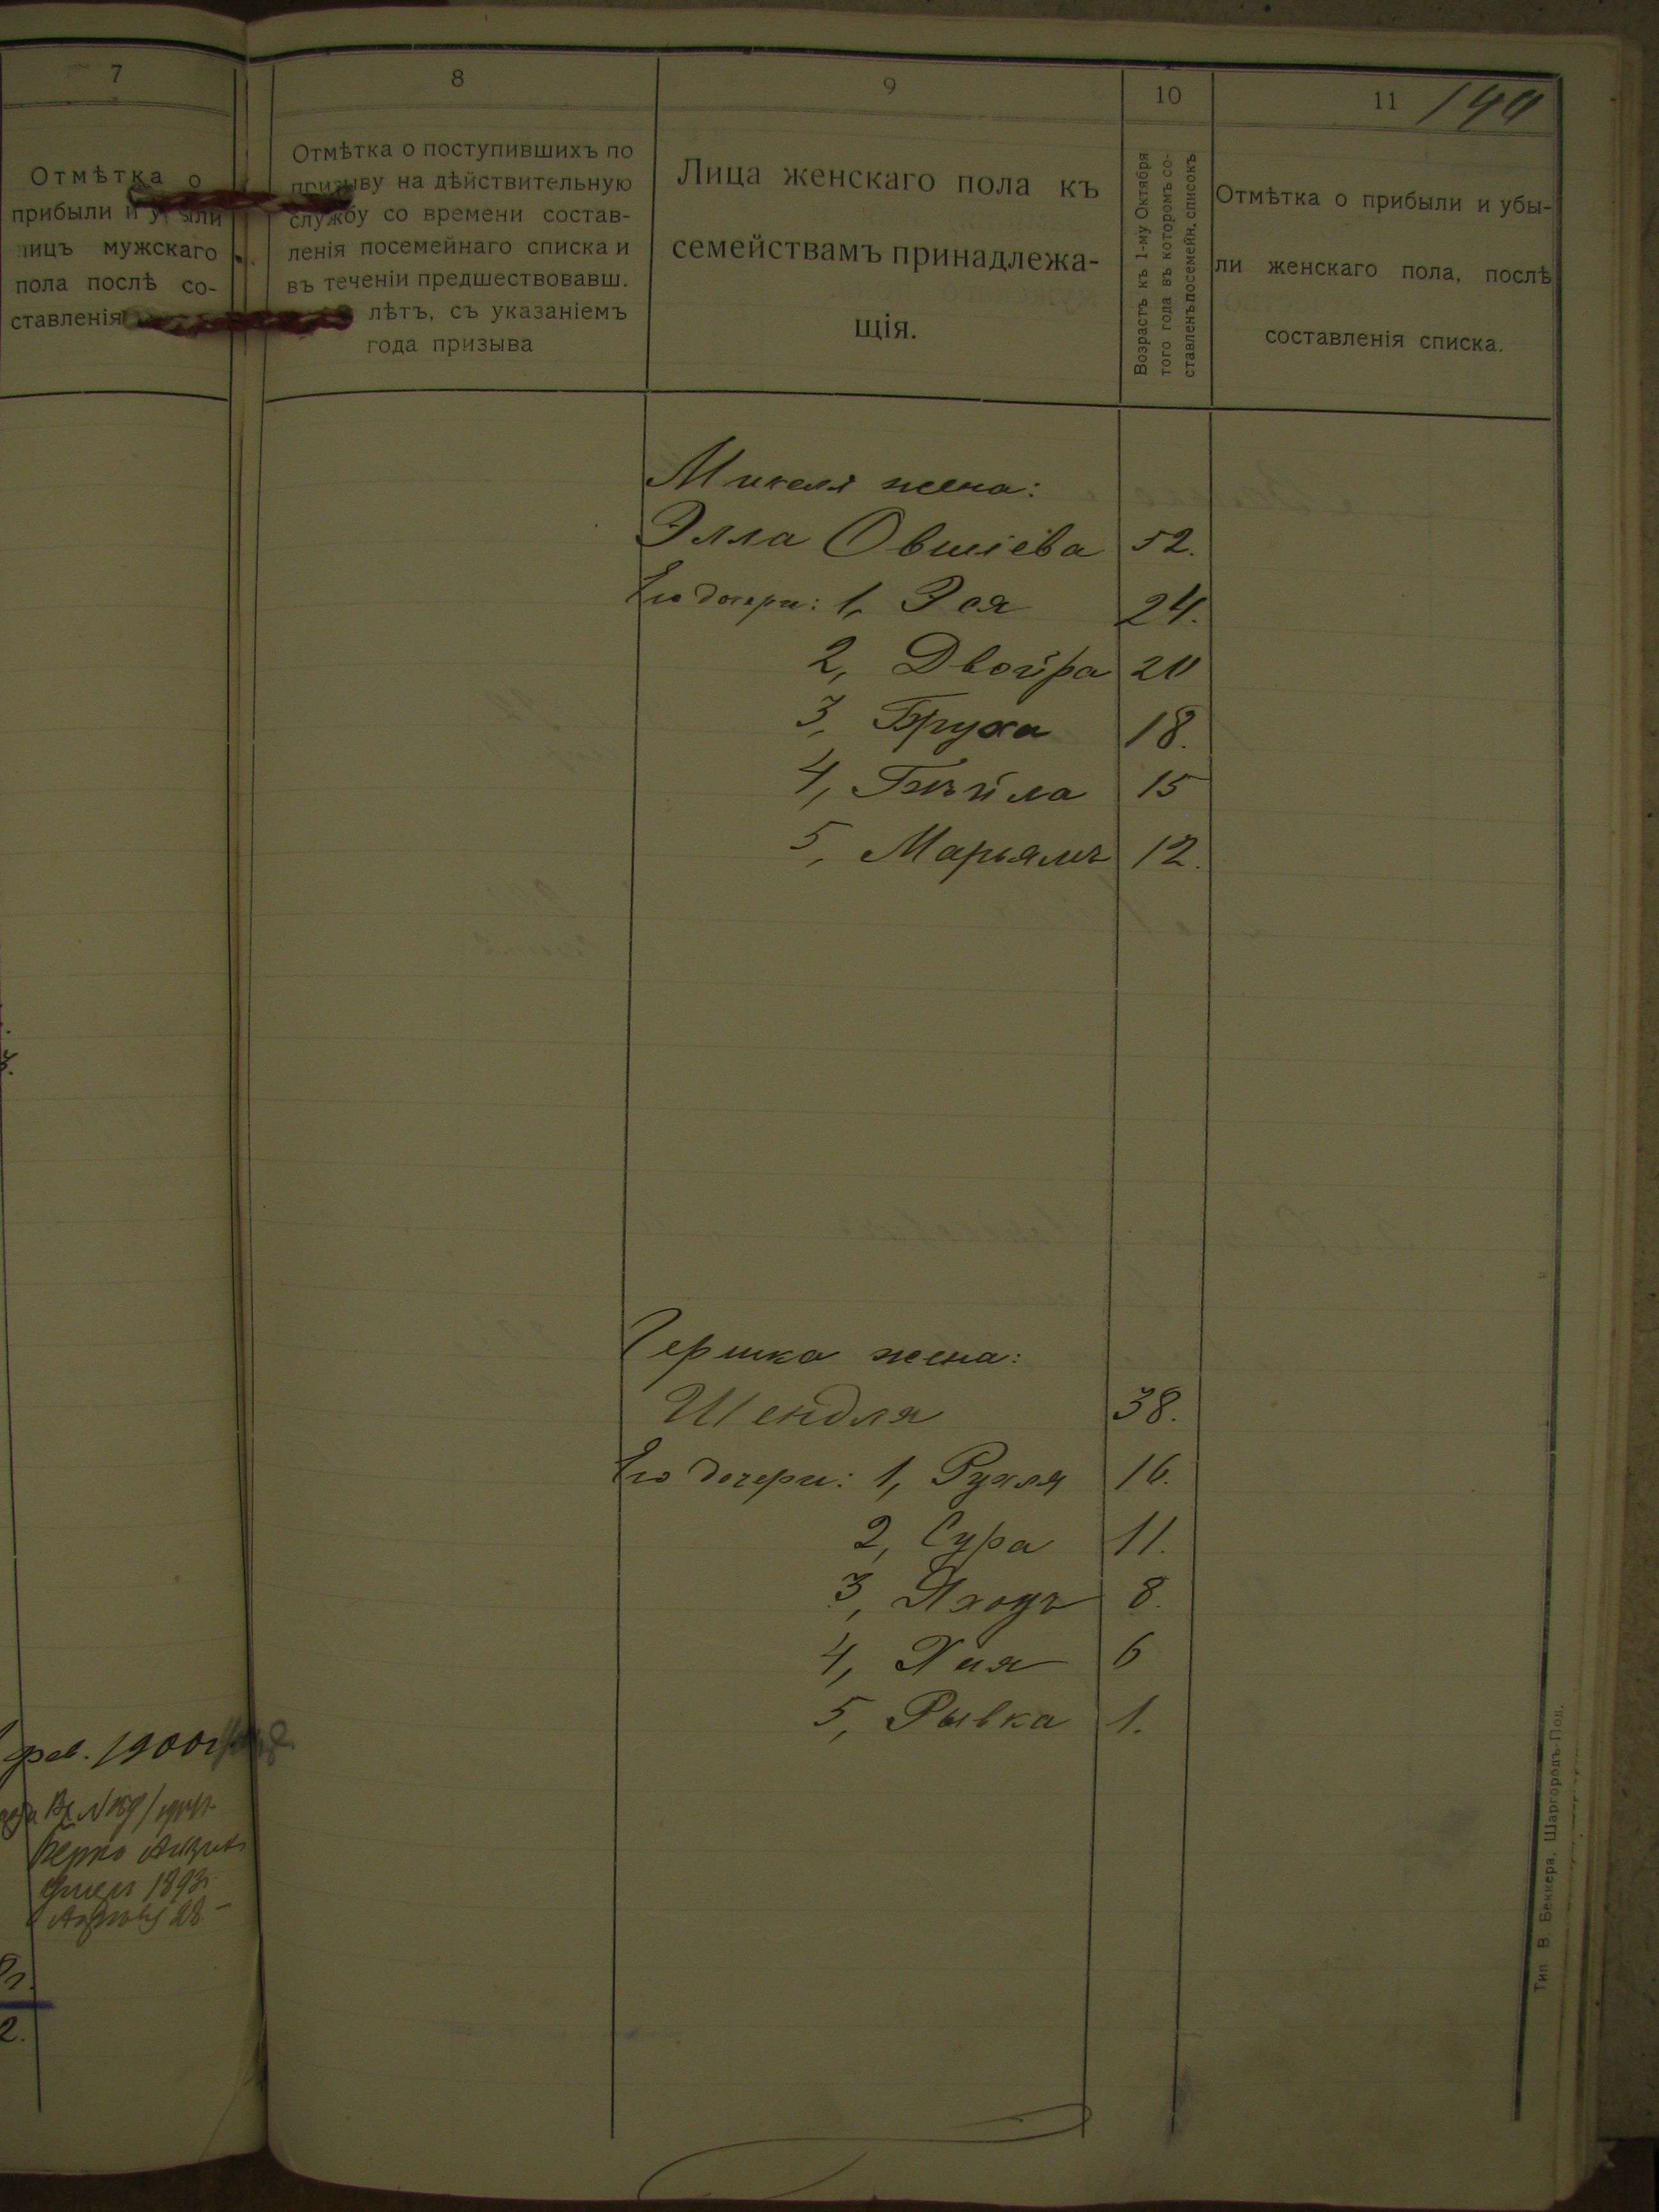 7
Отмѣтка о
прибыли и убыли
лицъ мужскаго
пола послѣ со-
ставленія
8
Отмѣтка о поступившихъ по
призыву на дѣйствительную
службу со времени состав-
ленія посемейнаго списка и
въ теченіи предшествовавш.
лѣтъ, съ указаніемъ
года призыва
9
Лица женскаго пола къ
семействамъ принадлежа-
щія.
10
Возрастъ къ 1-му Октября
того года въ которомъ со-
ставленъ посемейн. списокъ
11
Отмѣтка о прибыли и убы-
ли женскаго пола, послѣ
составленія списка.
Микеля жена:
Элла Овшіева 52.
Его дочери: 1, Эся 24.
2, Двойра 20
3, Бруха 18.
4, Бейла 15
5, Марьямъ 12.
Гершка жена:
Шендля 38.
Его дочери: 1, Рухля 16.
2, Сура 11.
3, 8.
4, Хая 6
5, Рывка 1.
фев. 1900
Берко
1893
28
2.
Тип. В. Беккера. Шаргородъ-Под.